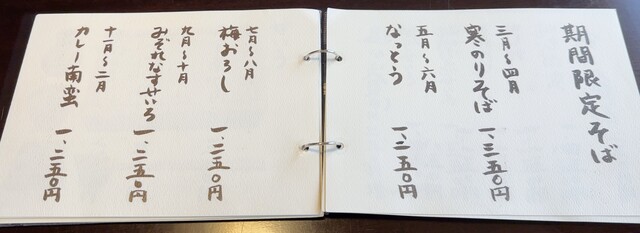 期間限定そば
三月〜四月
寒のりそば 一、三五〇円
五月〜六月
なっとう 一、二五〇円
七月〜八月
梅おろし 一、二五〇円
九月〜十月
みぞれなすせいろ 一、二五〇円
十一月〜二月
カレー南蛮 一、二五〇円